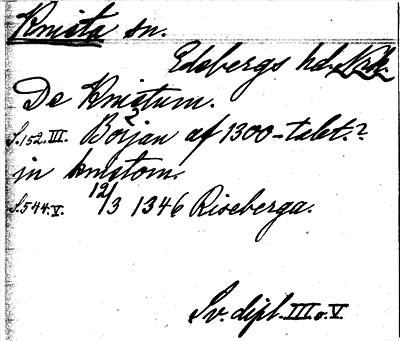 Knista sn.
Edsbergs hd. Nrk.
De Knistum.
S. 152. III. Början af 1300-talet.?
in knistom.
S. 544. V. 12/3 1346 Riseberga.
Sv. dipl. III o. V.